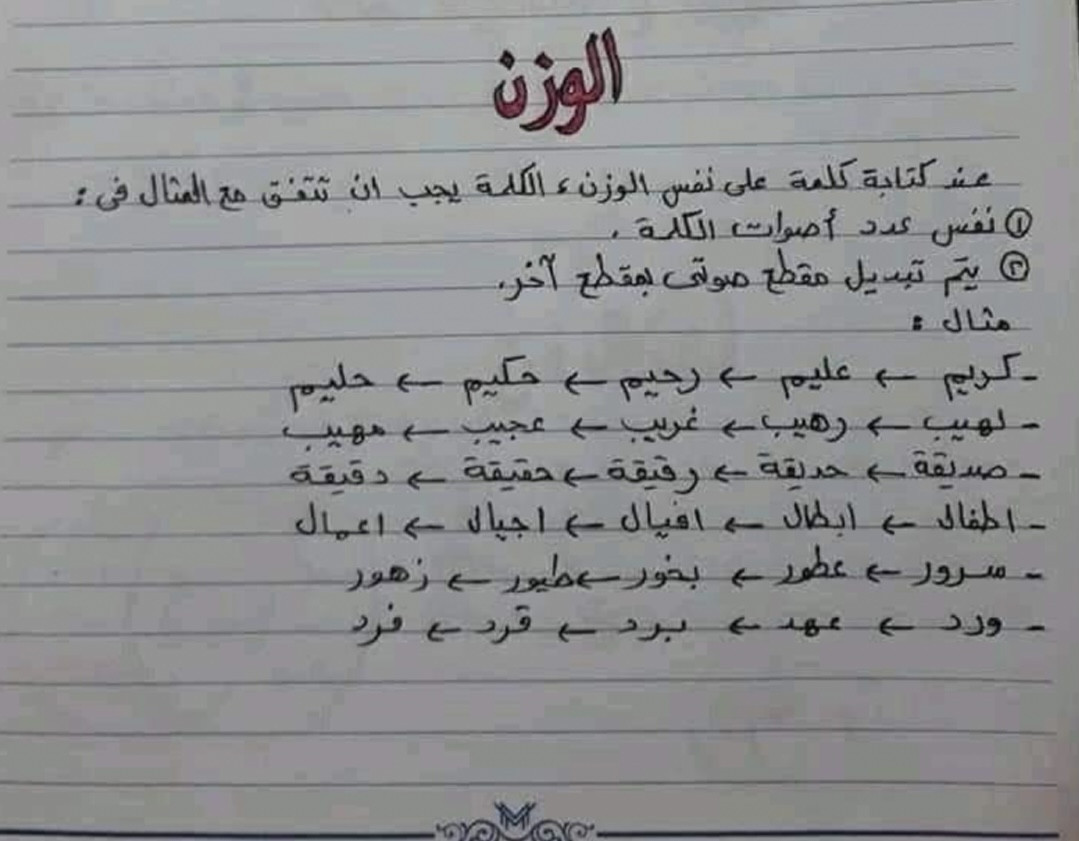 الوزن
عند كتابة كلمة على نفس الوزن، الكلمة يجب ان تتفق مع المثال فى :
① نفس عدد أصوات الكلمة .
② يتم تبديل مقطع صوتى بمقطع آخر.
مثال :
- كريم ← عليم ← رحيم ← حكيم ← حليم
- لهيب ← رهيب ← غريب ← عجيب ← مهيب
- صديقة ← حديقة ← رقيقة ← حقيقة ← دقيقة
- اطفال ← ابطال ← افيال ← اجيال ← اعمال
- سرور ← عطور ← بخور ← طيور ← زهور
- ورد ← عهد ← برد ← قرد ← فرد